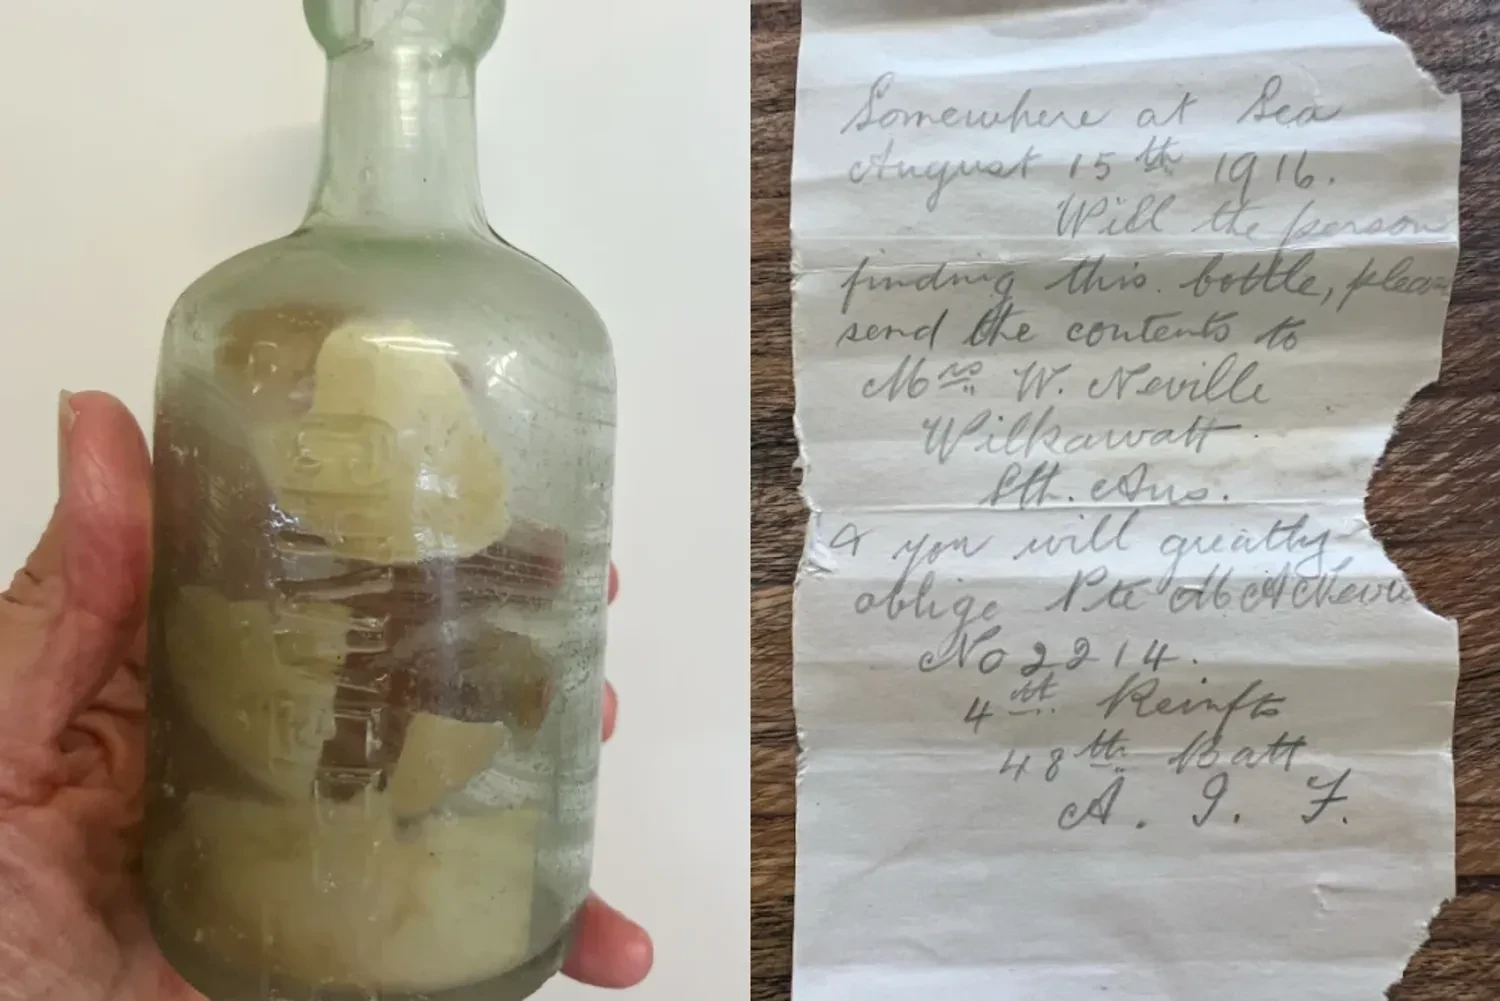 Somewhere at Sea
August 15th 1916.
Will the person
finding this bottle, pleas
send the contents to
Mrs W. Neville
Wilkawatt.
Sth. Aus.
& you will greatly
oblige Pte M A Nevill
No 2214.
4th Reinfts
48th Batt
A. I. F.